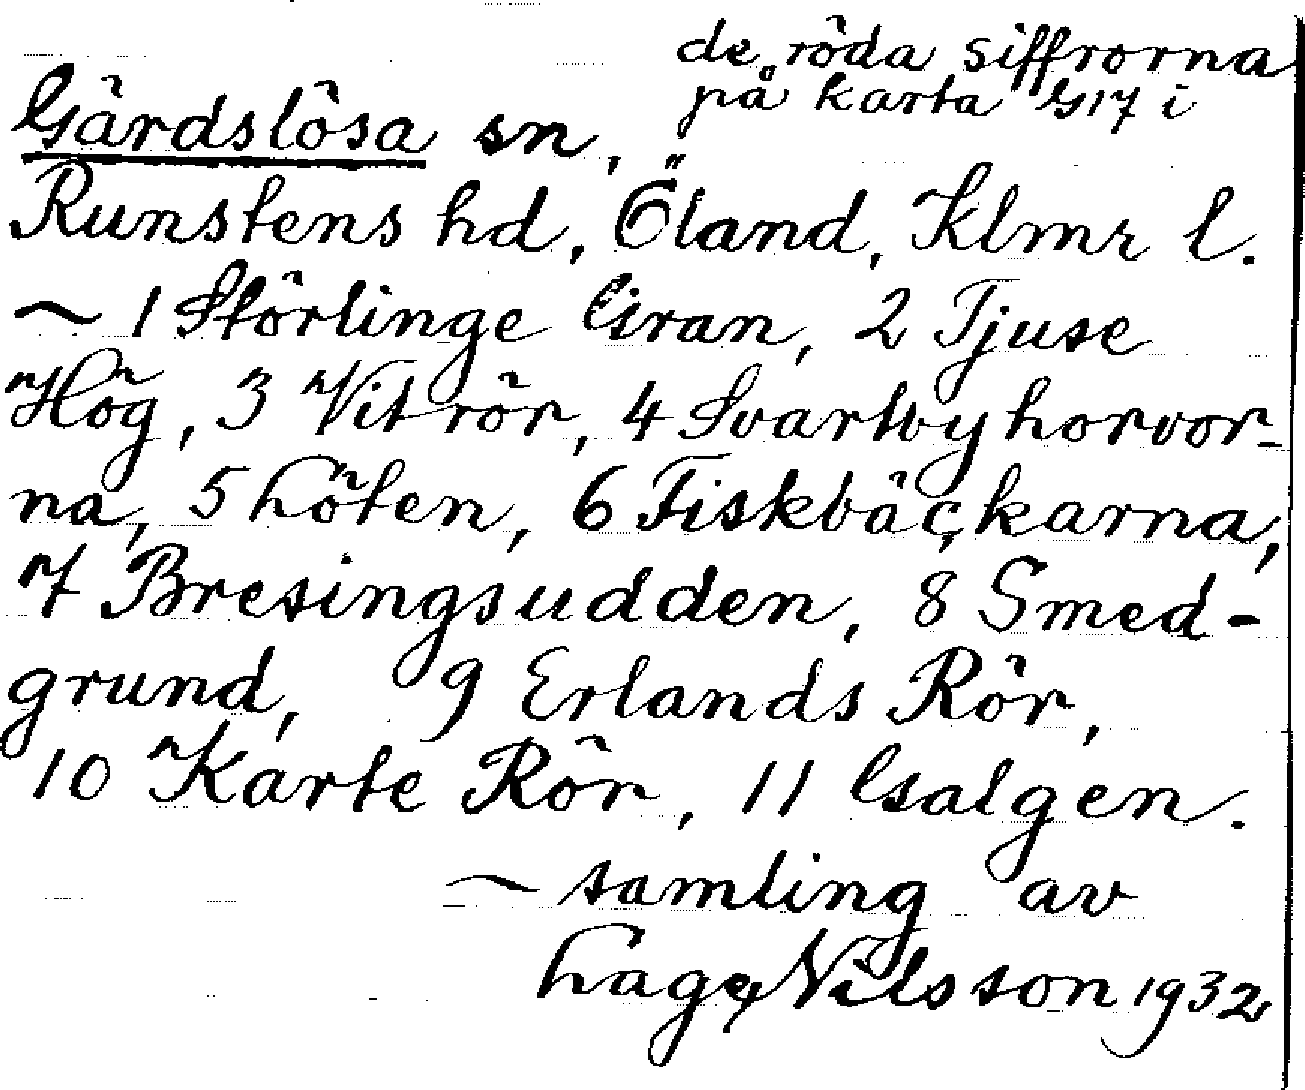 de röda siffrorna
på karta G17 i
Gärdslösa sn,
Runstens hd, Öland, Klmr l.
~ 1 Störlinge Eiran, 2 Tjuse
Hög, 3 Vit rör, 4 Svartvyhorvor-
na, 5 höten, 6 Fiskbäckarna,
7 Bresingsudden, 8 Smed-
grund, 9 Erlands Rör,
10 Karte Rör, 11 Galgen.
~ samling av
Nilsson 1932